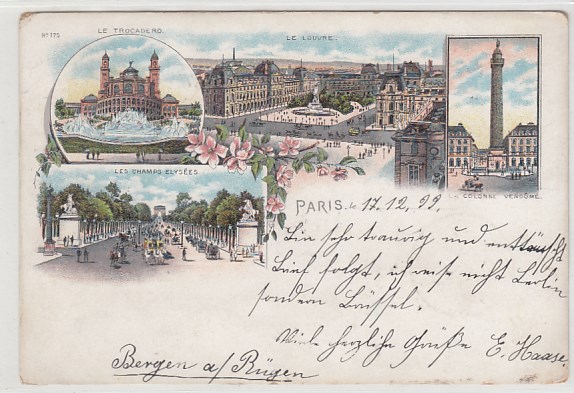 No 175
LE TROCADERO.
LE LOUVRE.
LA COLONNE VENDÔME.
LES CHAMPS ELYSÉES
PARIS. le 17.12.99.
Bin sehr traurig und enttäuscht
Brief folgt, ich reise nicht Berlin
sondern Brüssel.
Viele herzliche Grüße E. Haase.
Bergen a/ Rügen